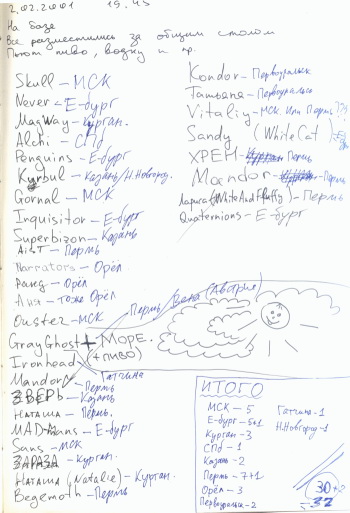 2.02.2001 19.45
На базе
Все разместились за общим столом
Пьют пиво, водку и пр.
Skull – МСК
Never – Е-бург
MagWay – Курган.
Alchi – СПб
Penguins – Е-бург
Kyrbul – Казань/Н.Новгород.
Gornal – МСК
Inquisitor – Е-бург
Superbizon – Казань
AisT – Пермь
Narrators – Орёл.
Ранед – Орёл
Аня – тоже Орёл
Ouster – МСК
GrayGhost + Море.
Ironhead (+пиво)
Mandor Гатчина
Пермь
ЗВЕРЬ – Казань
Наташа – Пермь.
MAD-Hans – Е-бург
Sans – МСК
ЗАРАЗА – Курган.
Наташа (Natalie) – Курган.
Begemoth – Пермь
Kondor – Первоуральск
Татьяна – Первоуральск
Vitaliy – МСК. Или Пермь ???
Sandy (WhiteCat)
ХРЕН – Пермь
Mandor – Пермь
Лариса (WhiteAndFluffy) – Пермь
Quaternions – Е-бург
Пермь Вета (Авария)
ИТОГО
МСК – 5
Е-бург – 5+1
Курган – 3
СПб – 1
Казань – 2
Пермь – 7+1
Орёл – 3
Первоуральск – 2
Гатчина – 1
Н.Новгород – 1
30+2
= 32